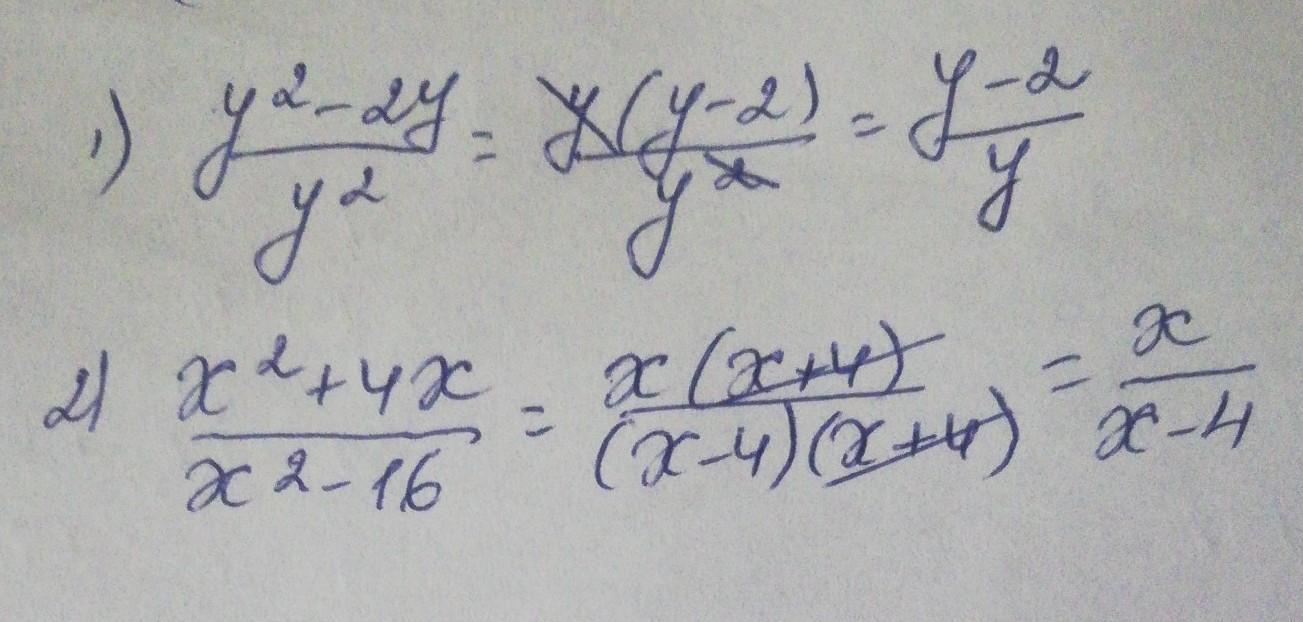 1) \frac{y^2-2y}{y^2} = \frac{y(y-2)}{y^2} = \frac{y-2}{y}
2) \frac{x^2+4x}{x^2-16} = \frac{x(x+4)}{(x-4)(x+4)} = \frac{x}{x-4}